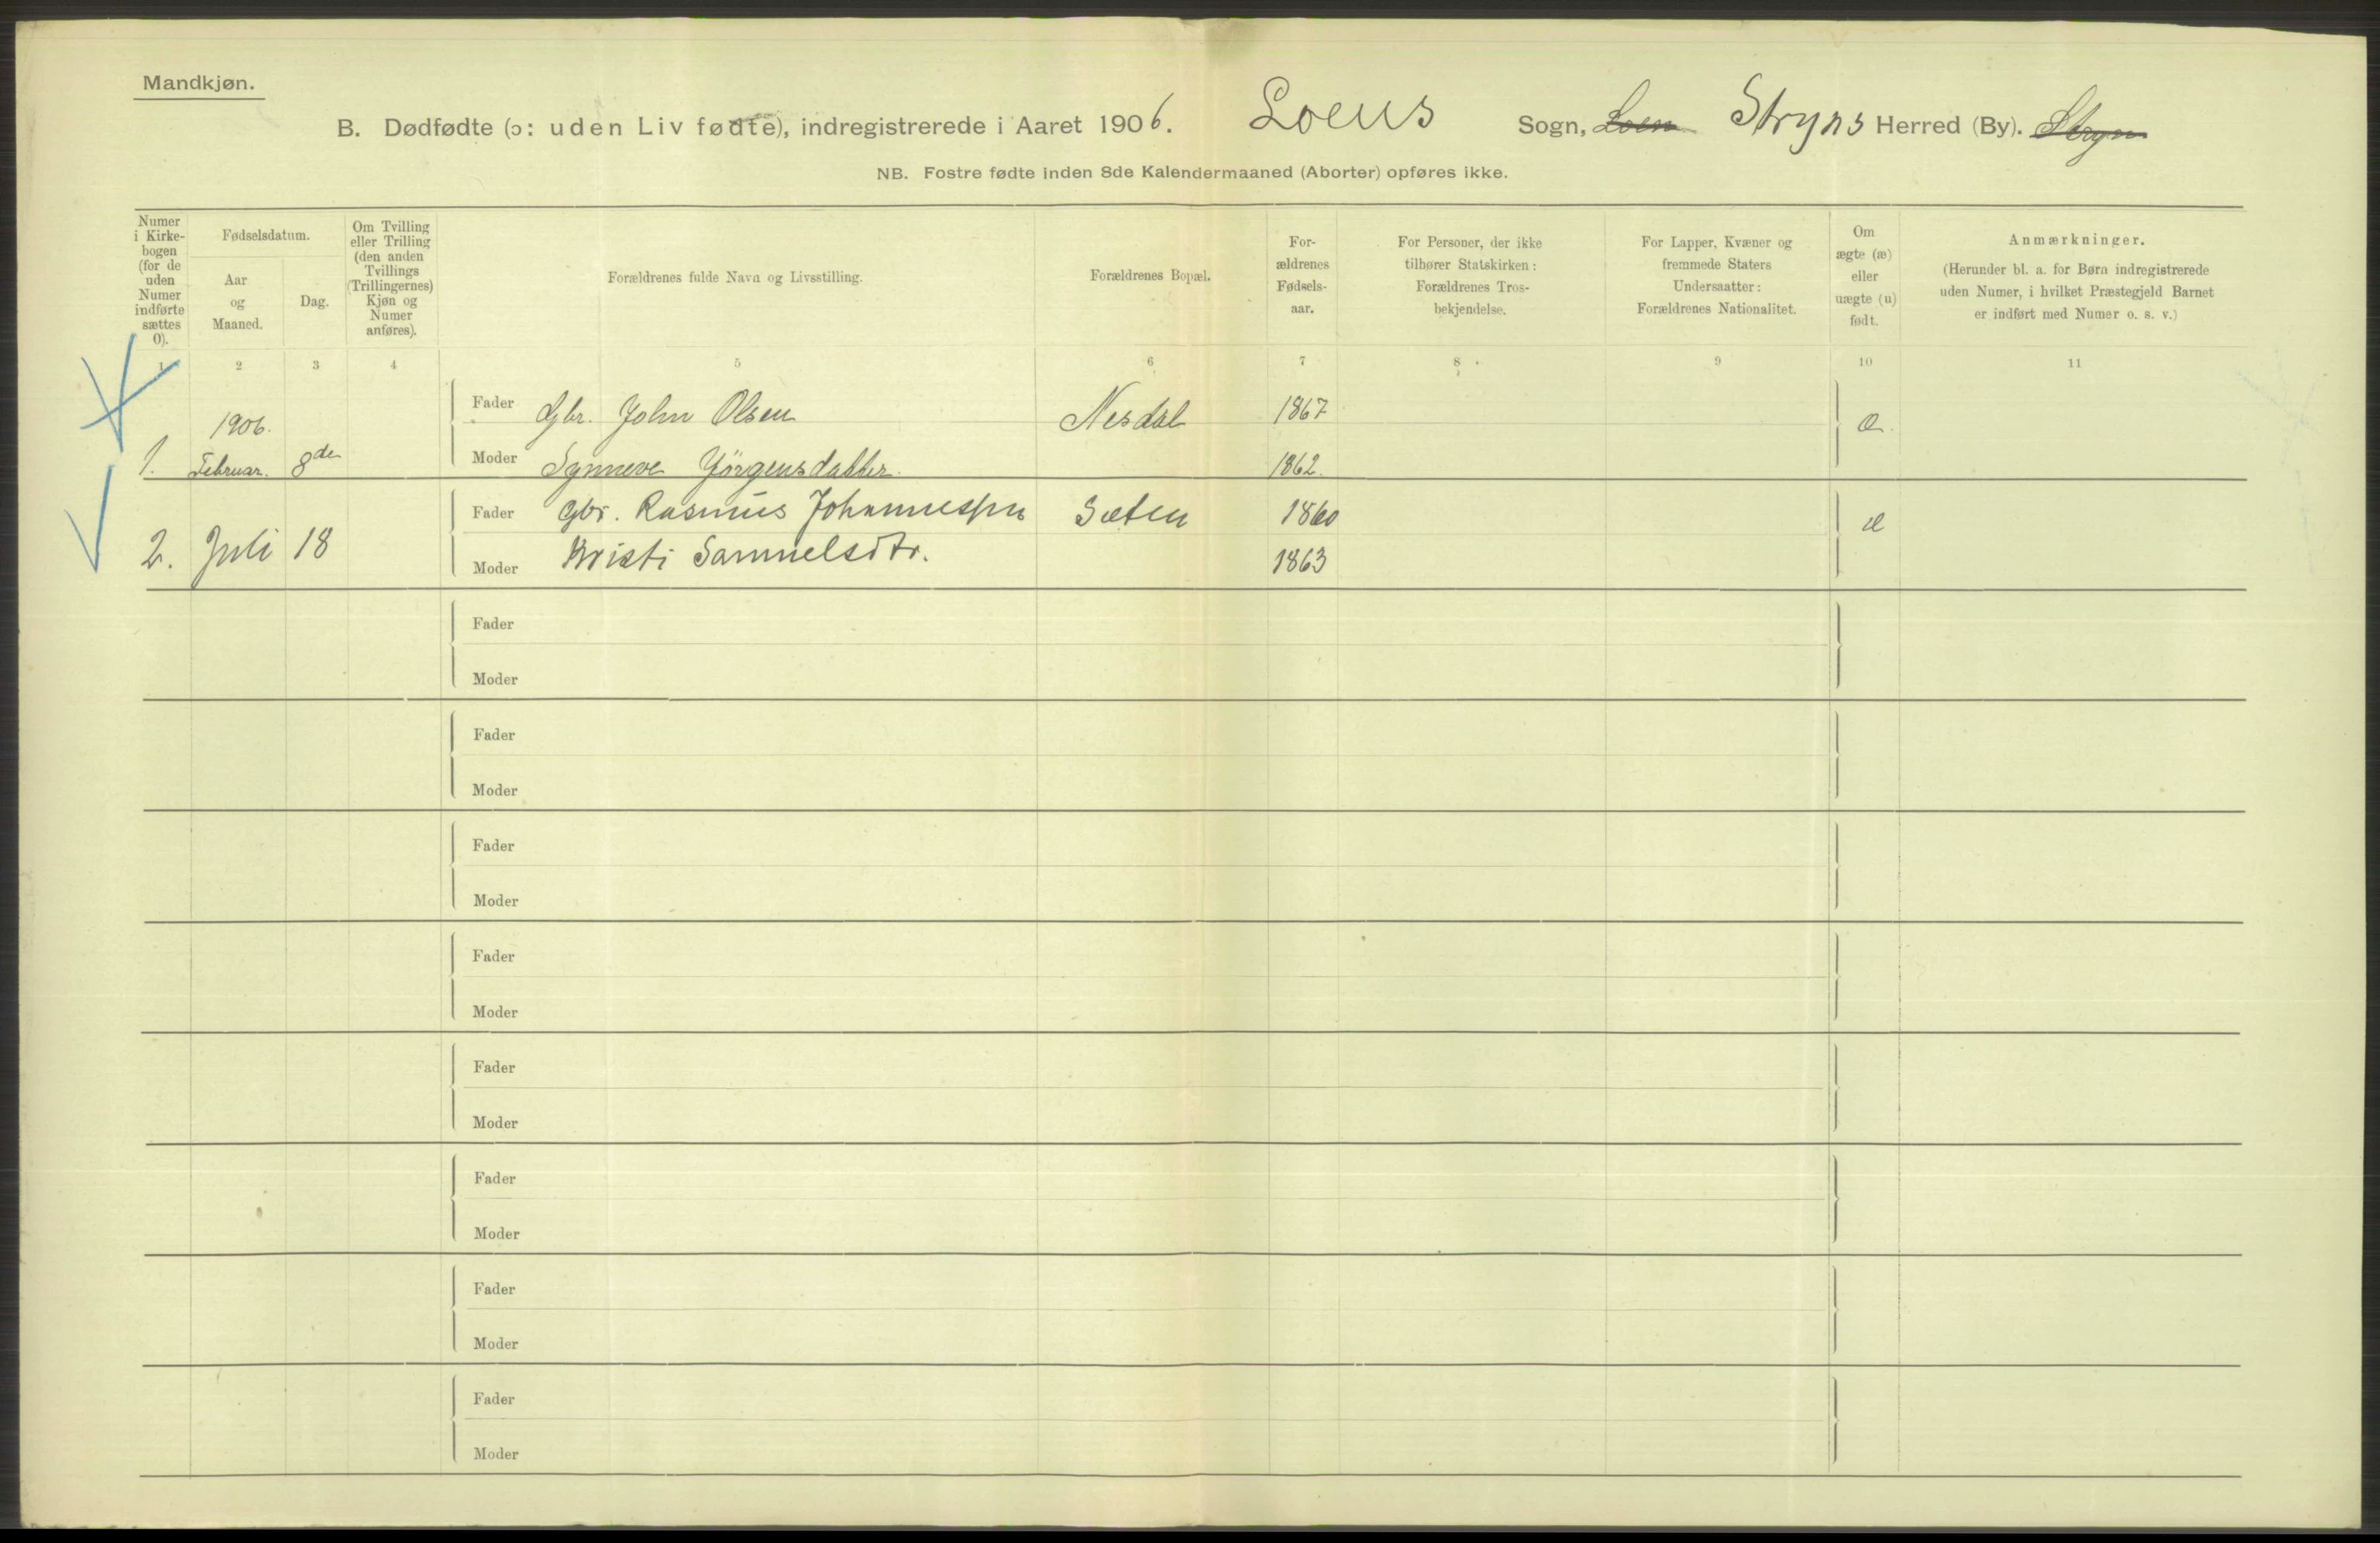 Mandkjøn.
B. Dødfødte (ɔ: uden Liv fødte), indregistrerede i Aaret 1906. Loens Sogn, Loen Stryns Herred (By). Stryn
NB. Fostre fødte inden 8de Kalendermaaned (Aborter) opføres ikke.
Numer
i Kirke-
bogen
(for de
uden
Numer
indførte
sættes
0).
Fødselsdatum.
Aar
og
Maaned.
Dag.
Om Tvilling
eller Trilling
(den anden
Tvillings
(Trillingernes)
Kjøn og
Numer
anføres).
Forældrenes fulde Navn og Livsstilling.
Forældrenes Bopæl.
For-
ældrenes
Fødsels-
aar.
For Personer, der ikke
tilhører Statskirken:
Forældrenes Tros-
bekjendelse.
For Lapper, Kvæner og
fremmede Staters
Undersaatter:
Forældrenes Nationalitet.
Om
ægte (æ)
eller
uægte (u)
født.
Anmærkninger.
(Herunder bl. a. for Børn indregistrerede
uden Numer, i hvilket Præstegjeld Barnet
er indført med Numer o. s. v.)
1 2 3 4 5 6 7 8 9 10 11
1906.
Fader Gbr. John Olsen Nesdal 1867 æ.
1. Februar. 8de Moder Synneve Jörgensdatter. 1862.
Fader Gbr. Rasmus Johannessen Sæten 1860 æ
2. Juli 18 Moder Kristi Samuelsdtr. 1863
Fader
Moder
Fader
Moder
Fader
Moder
Fader
Moder
Fader
Moder
Fader
Moder
Fader
Moder
Fader
Moder